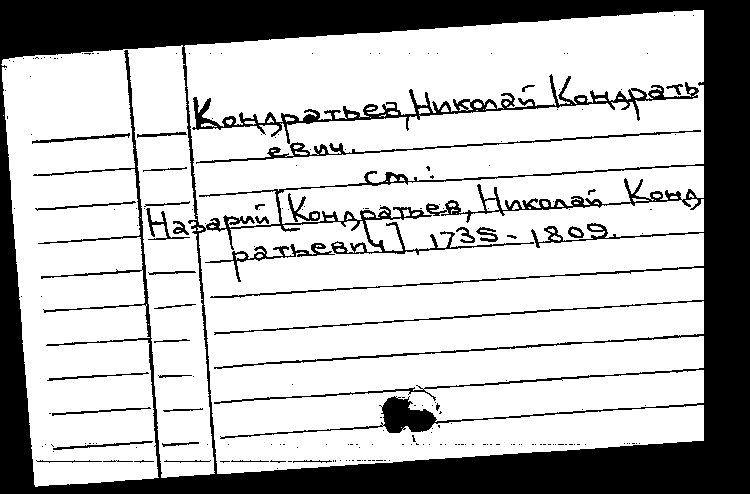 Кондратьев, Николай Кондрать-
евич.
см.:
Назарий [Кондратьев, Николай Конд
ратьевич], 1735-1809.